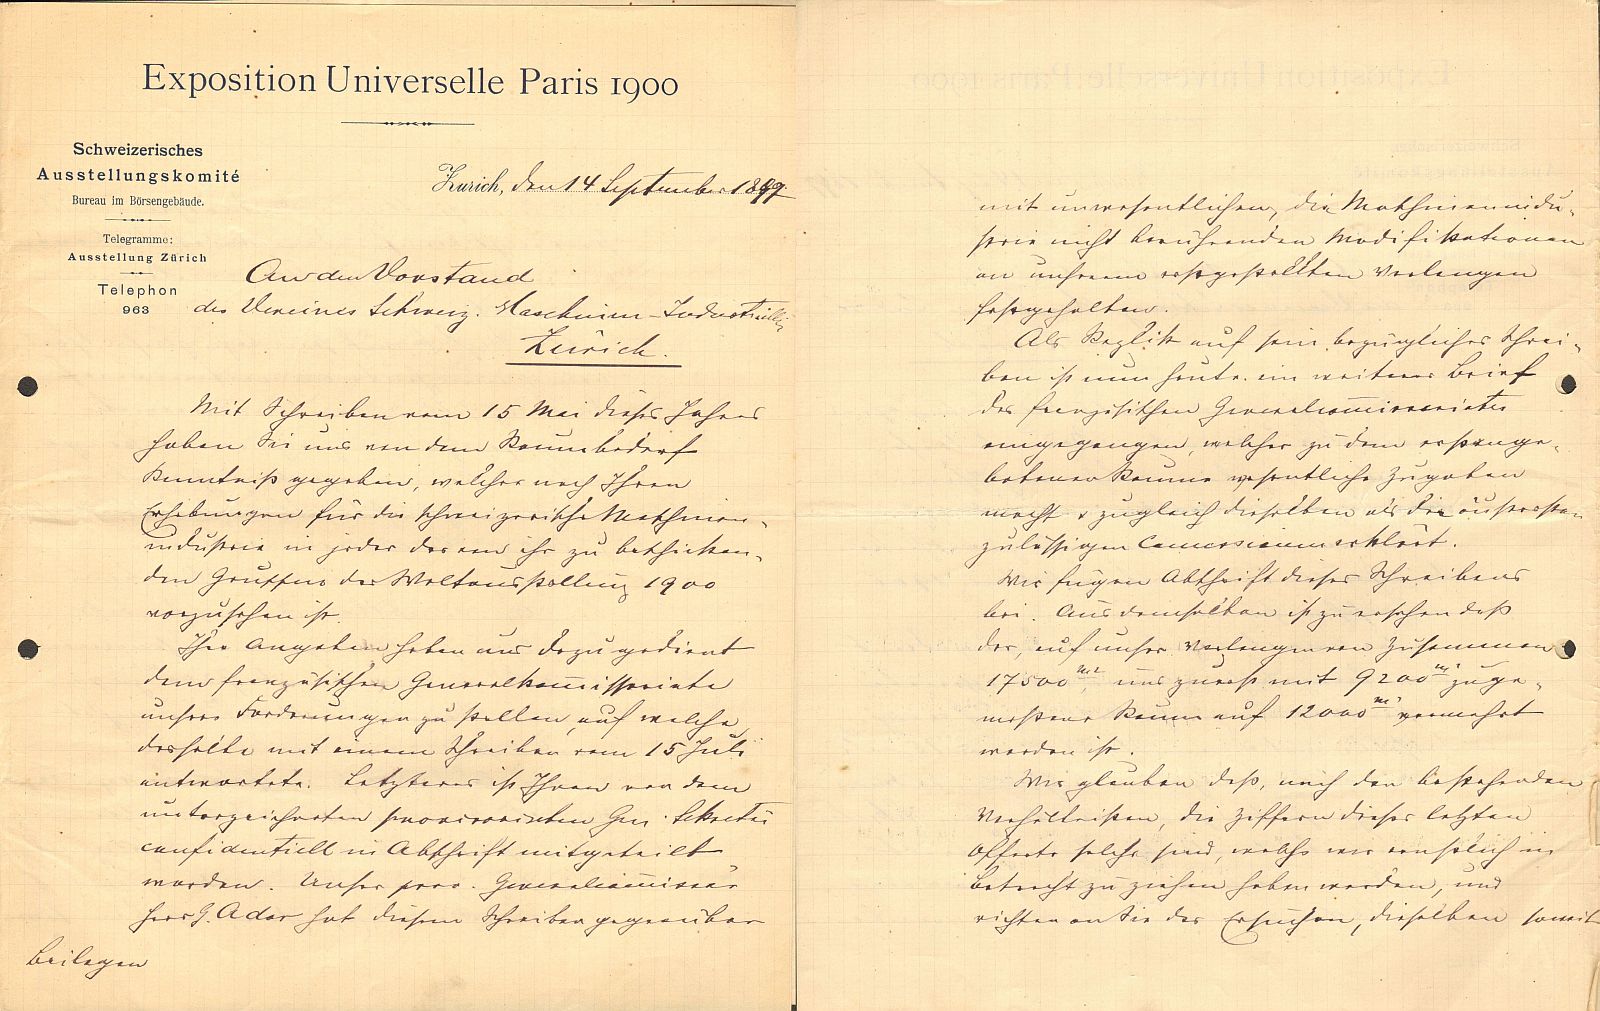 Exposition Universelle Paris 1900
Schweizerisches
Ausstellungskomité
Bureau im Börsengebäude.
Telegramme:
Ausstellung Zürich
Telephon
963
Zürich, den 14 September 1899.
An den Vorstand
des Vereines Schweiz. Maschinen-Industrieller
Zürich.
Mit Schreiben vom 15 Mai dieses Jahres
haben Sie uns von dem Raumbedarf
Kenntniß gegeben, welcher nach Ihren
Erhebungen für die schweizerische Maschinen-
industrie in jeder der von ihr zu beschicken-
den Gruppen der Weltausstellung 1900
vorzusehen ist.
Ihre Angaben haben uns dazu gedient
dem französischen Generalkommissariate
unsere Forderungen zu stellen, auf welche
dasselbe mit einem Schreiben vom 15 Juli
antwortete. Letzteres ist Ihnen von dem
unterzeichneten provisorischen Gen. Sekretär
confidentiell in Abschrift mitgeteilt
worden. Unser prov. Generalcommissär
Herr G. Ador hat diesem Schreiben gegenüber
Beilagen
mit unwesentlichen, die Maschinenindu-
strie nicht berührenden Modifikationen
an unserem erstgestellten Verlangen
festgehalten.
Als Replik auf sein bezügliches Schrei-
ben ist nun heute ein weiterer Brief
des französischen Generalcommissariates
eingegangen, welcher zu dem erstange-
botenen Raume wesentliche Zugaben
macht & zugleich dieselben als die äussersten
zulässigen Concessionen erklärt.
Wir fügen Abschrift dieses Schreibens
bei. Aus demselben ist zu ersehen daß
der, auf unser Verlangen von zusammen
17500 m², uns zuerst mit 9200 m² zuge-
messene Raum auf 12000 m² vermehrt
worden ist.
Wir glauben daß, nach den bestehenden
Verhältnissen, die Ziffern dieser letzten
Offerte solche sind, welche wir ernstlich in
Betracht zu ziehen haben werden, und
richten an Sie das Ersuchen, dieselben somit